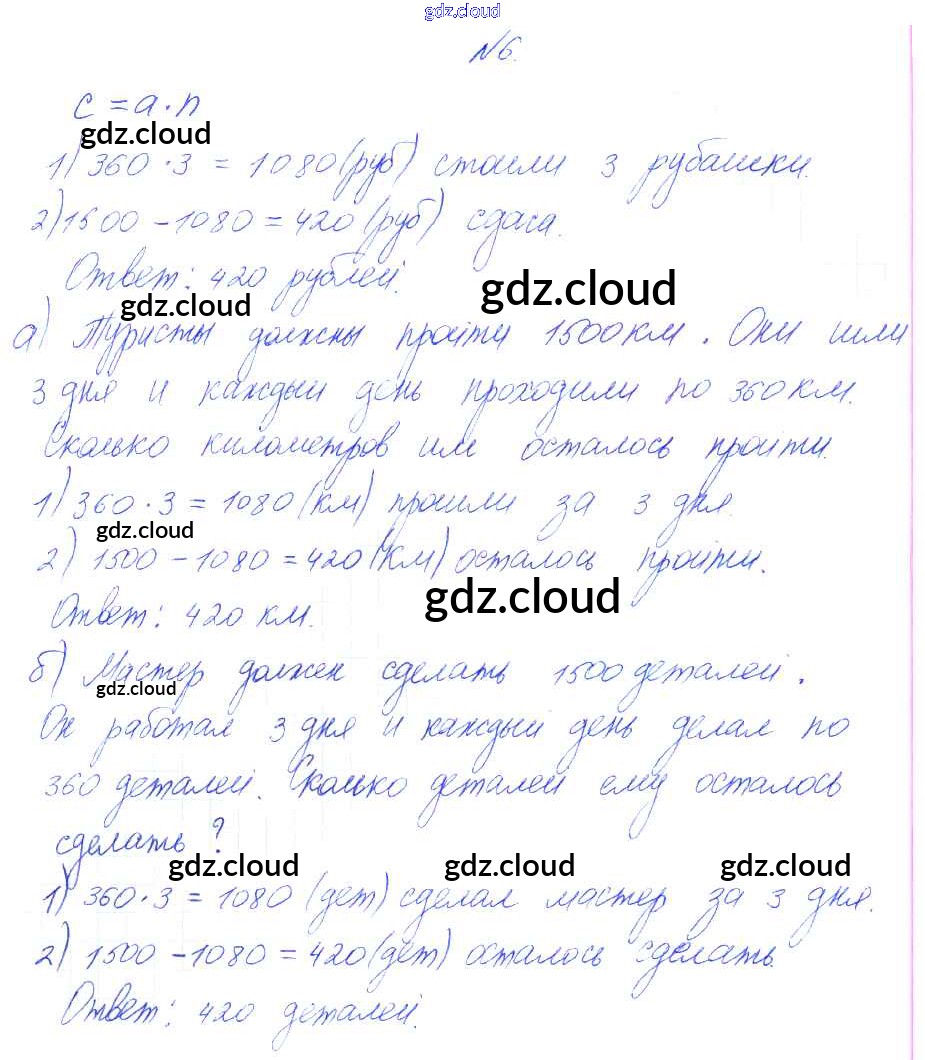 gdz.cloud
№6.
c = a · n
gdz.cloud
1) 360 · 3 = 1080 (руб) стоили 3 рубашки.
2) 1500 - 1080 = 420 (руб) сдача.
Ответ: 420 рублей.
gdz.cloud
gdz.cloud
а) Туристы должны пройти 1500 км. Они шли
3 дня и каждый день проходили по 360 км.
Сколько километров им осталось пройти.
1) 360 · 3 = 1080 (км) прошли за 3 дня.
gdz.cloud
2) 1500 - 1080 = 420 (км) осталось пройти.
Ответ: 420 км.
gdz.cloud
б) Мастер должен сделать 1500 деталей.
gdz.cloud
Он работал 3 дня и каждый день делал по
360 деталей. Сколько деталей ему осталось
сделать?
gdz.cloud gdz.cloud gdz.cloud
1) 360 · 3 = 1080 (дет) сделал мастер за 3 дня.
2) 1500 - 1080 = 420 (дет) осталось сделать.
Ответ: 420 деталей.